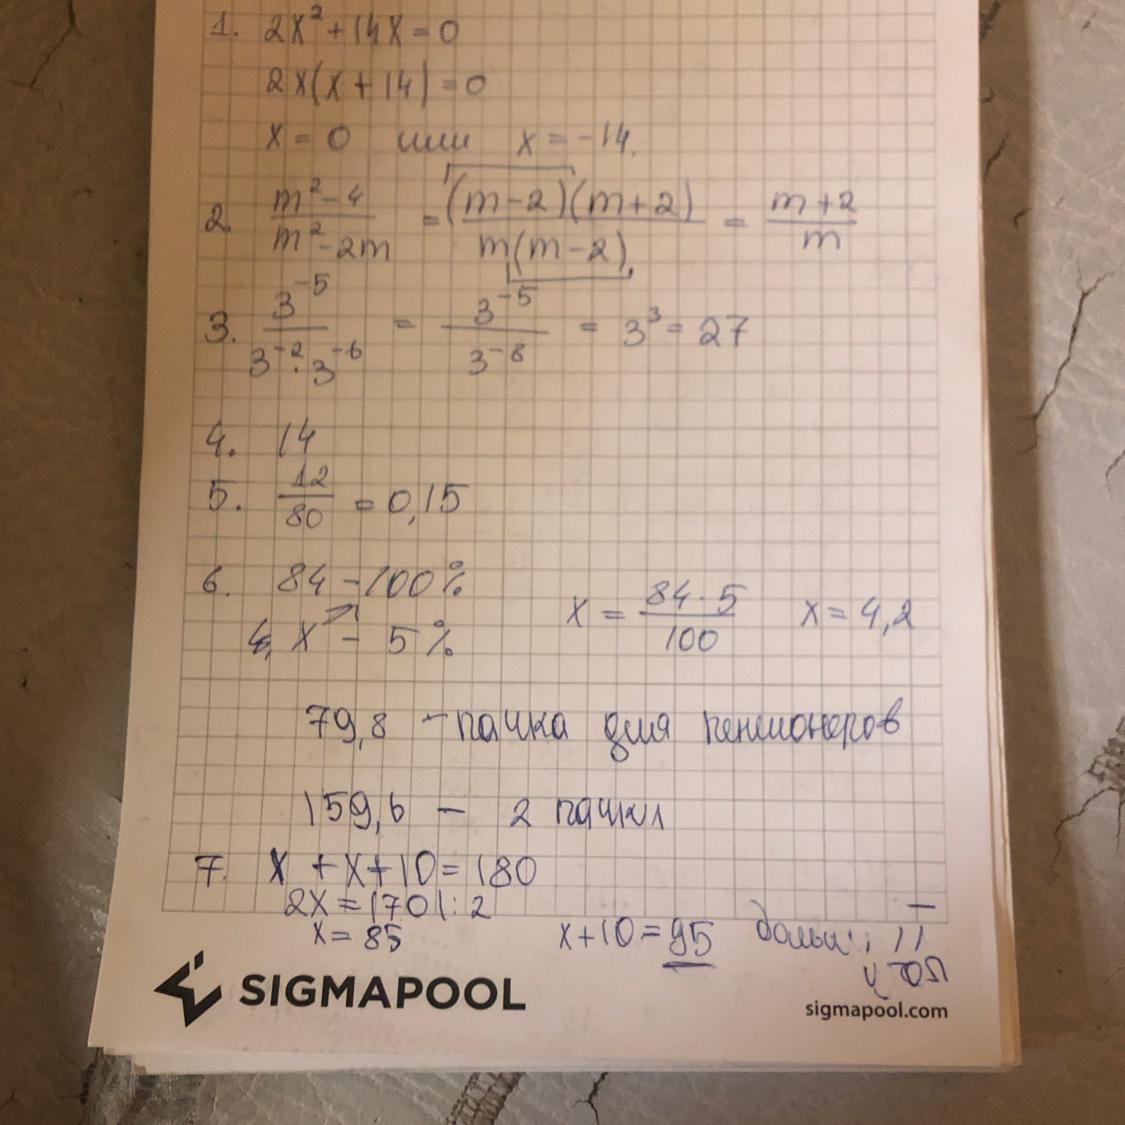 1. 2x² + 14x = 0
2x(x + 14) = 0
x = 0 или x = -14.
2. m²-4 / m²-2m = (m-2)(m+2) / m(m-2) = m+2 / m
3. 3⁻⁵ / 3⁻² · 3⁻⁶ = 3⁻⁵ / 3⁻⁸ = 3³ = 27
4. 14
5. 12 / 80 = 0,15
6. 84 - 100%
x - 5% x = 84 · 5 / 100 x = 4,2
79,8 - пачка для пенсионеров
159,6 - 2 пачки
7. x + x + 10 = 180
2x = 170 | : 2
x = 85 x + 10 = 95
SIGMAPOOL
sigmapool.com